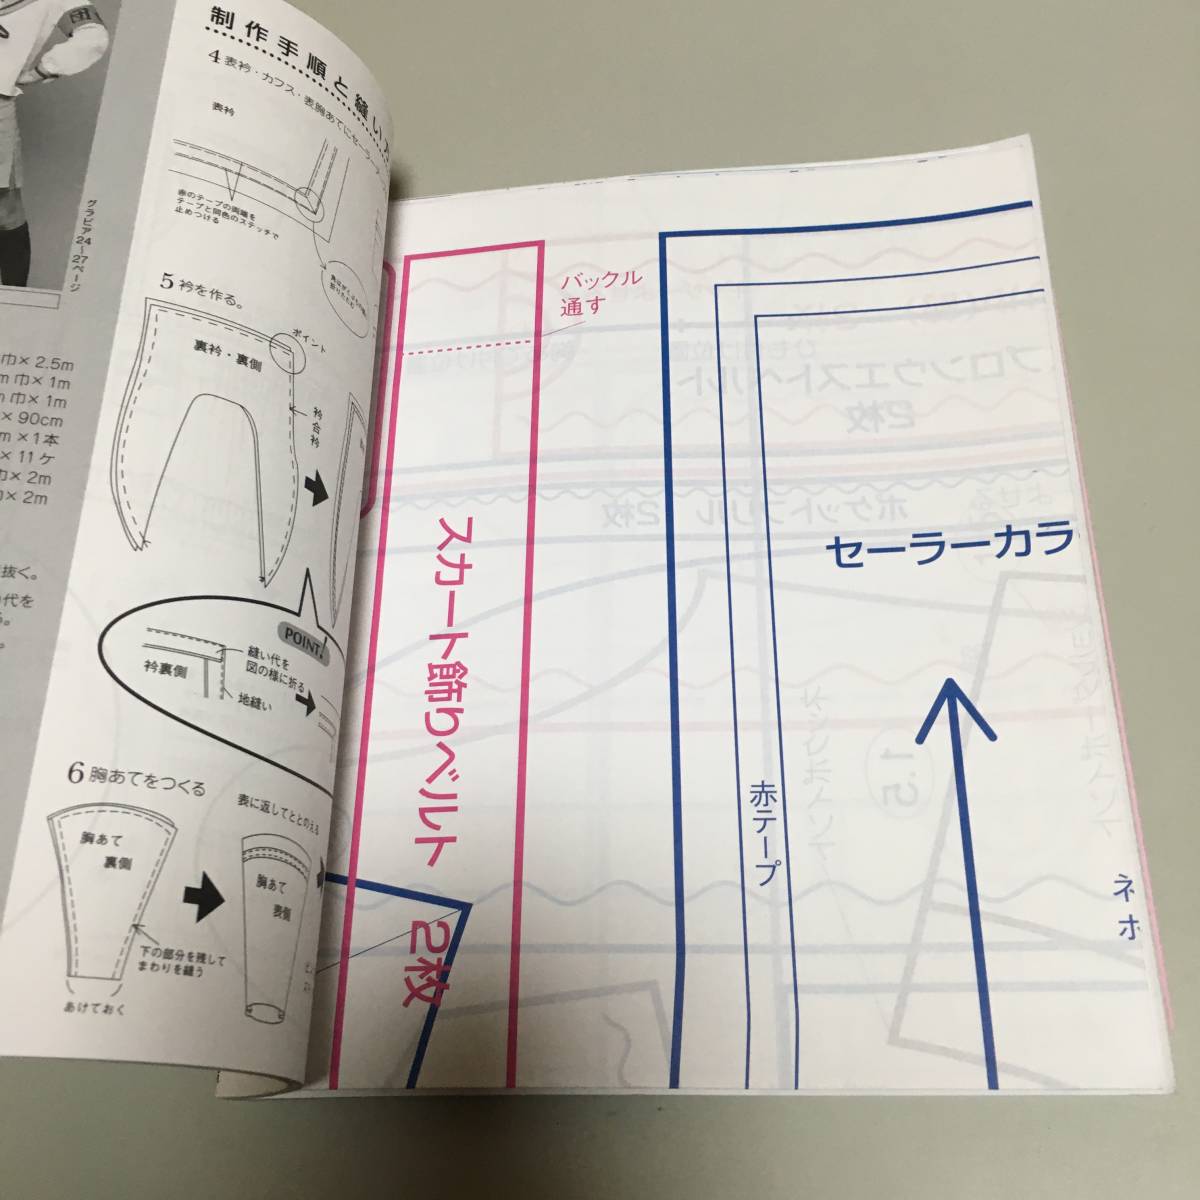 団
グラビア24〜27ページ
巾×2.5m
m 巾×1m
m 巾×1m
×90cm
m×1本
×11ケ
巾×2m
巾×2m
抜く。
代を
制作手順と縫い
4 表衿・カフス・表胸あてにセーラー
表衿
赤のテープの両端を
テープと同色のステッチで
止めつける
5 衿を作る。
ポイント
裏衿・裏側
衿合衿
POINT!
縫い代を
図の様に折る
衿裏側
地縫い
6 胸あてをつくる
表に返してととのえる
胸あて
裏側
胸あて
表側
下の部分を残して
まわりを縫う
あけておく
バックル
通す
スカート飾りベルト 2枚
セーラーカラ
赤テープ
ネ
ホ
プロンウエストベルト
2枚
ポケットフリル 2枚
1.5